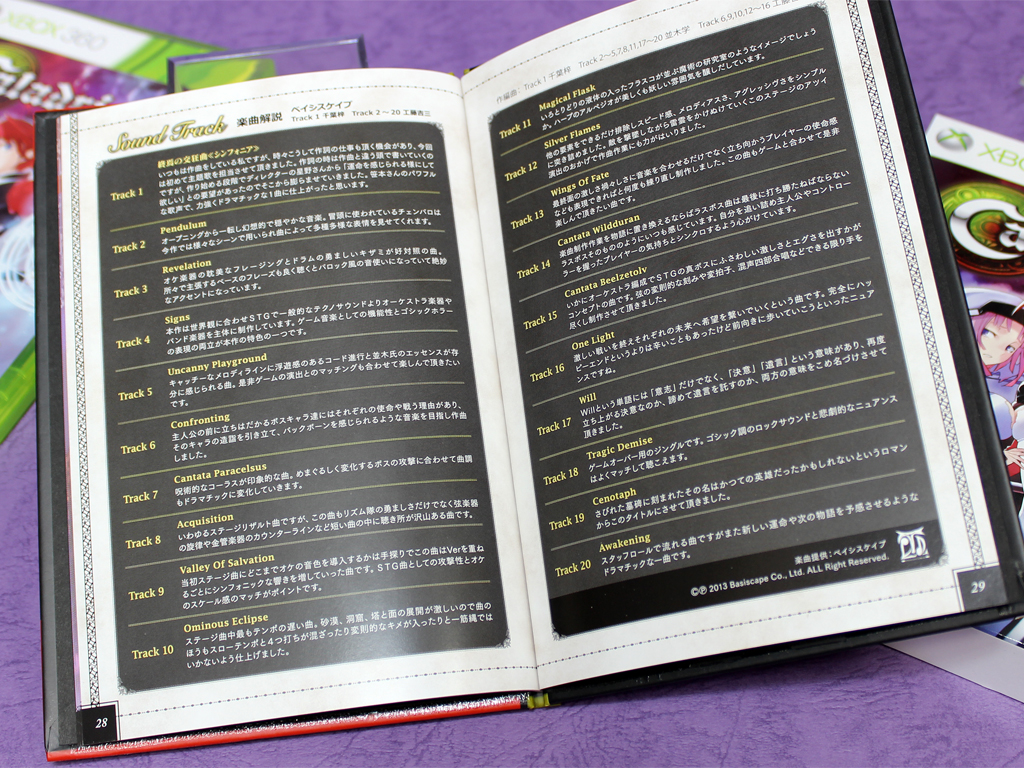 XBOX 360
Sound Track 楽曲解説
ベイシスケイプ
Track 1 千葉梓 Track 2〜20 工藤吉三
Track 1
終焉の交狂曲<シンフォニア>
いつもは作曲をしている私ですが、時々こうして作詞の仕事も頂く機会があり、今回
は初めて主題歌を担当させて頂きました。作詞の時は作曲と違う頭で書いていくの
ですが、作り始める段階でディレクターの星野さんから「運命を感じられる様にして
欲しい」との要望があったのでそこから膨らませていきました。笹本さんのパワフル
な歌声で、力強くドラマチックな1曲に仕上がったと思います。
Track 2
Pendulum
オープニングから一転し幻想的で穏やかな音楽。冒頭に使われているチェンバロは
今作では様々なシーンで用いられ曲によって多種多様な表情を見せてくれます。
Track 3
Revelation
オケ楽器の耽美なフレージングとドラムの勇ましいキザミが好対照の曲。
所々で主張するベースのフレーズも良く聴くとバロック風の音使いになっていて絶妙
なアクセントになっています。
Track 4
Signs
本作は世界観に合わせSTGで一般的なテクノサウンドよりオーケストラ楽器や
バンド楽器を主体に制作しています。ゲーム音楽としての機能性とゴシックホラー
の表現の両立が本作の特色の一つです。
Track 5
Uncanny Playground
キャッチーなメロディラインに浮遊感のあるコード進行と並木氏のエッセンスが存
分に感じられる曲。是非ゲームの演出とのマッチングも合わせて楽しんで頂きたい
です。
Track 6
Confronting
主人公の前に立ちはだかるボスキャラ達にはそれぞれの使命や戦う理由があり、
そのキャラの造詣を引き立て、バックボーンを感じられるような音楽を目指し作曲
しました。
Track 7
Cantata Paracelsus
呪術的なコーラスが印象的な曲。めまぐるしく変化するボスの攻撃に合わせて曲調
もドラマチックに変化していきます。
Track 8
Acquisition
いわゆるステージリザルト曲ですが、この曲もリズム隊の勇ましさだけでなく弦楽器
の旋律や金管楽器のカウンターラインなど短い曲の中に聴き所が沢山ある曲です。
Track 9
Valley Of Salvation
当初ステージ曲にどこまでオケの音色を導入するかは手探りでこの曲はVerを重ね
るごとにシンフォニックな響きを増していった曲です。STG曲としての攻撃性とオケ
のスケール感のマッチがポイントです。
Track 10
Ominous Eclipse
ステージ曲中最もテンポの遅い曲。砂漠、洞窟、塔と面の展開が激しいので曲の
ほうもスローテンポと4つ打ちが混ざったり変則的なキメが入ったりと一筋縄では
いかないよう仕上げました。
28
作編曲：Track 1 千葉梓 Track 2〜5,7,8,11,17〜20 並木学 Track 6,9,10,12〜16 工藤吉
Track 11
Magical Flask
いろとりどりの液体の入ったフラスコが並ぶ魔術の研究室のようなイメージでしょう
か。ハープのアルペジオが美しくも妖しい雰囲気を醸しだしています。
Track 12
Silver Flames
他の要素をできるだけ排除しスピード感、メロディアスさ、アグレッシヴさをシンプル
に突き詰めました。敵を撃墜しながら雷雲をかけぬけていくこのステージのアツイ
演出のおかげで作曲作業にも力がはいりました。
Track 13
Wings Of Fate
最終面の激しさ禍々しさに音楽を合わせるだけでなく立ち向かうプレイヤーの使命感
なども表現できればと何度も練り直し制作しました。この曲もゲームと合わせて是非
楽しんで頂きたい曲です。
Track 14
Cantata Wilduran
楽曲制作作業を物語に置き換えるならばラスボス曲は最後に打ち勝たねばならない
ラスボスそのもののようにいつも感じています。自分を追い詰め主人公やコントロー
ラーを握ったプレイヤーの気持ちとシンクロするよう心がけています。
Track 15
Cantata Beelzetolv
いかにオーケストラ編成でSTGの真ボスにふさわしい激しさとエグさを出すかが
コンセプトの曲です。弦の変則的な刻みや変拍子、混声四部合唱などできる限り手を
尽くし制作させて頂きました。
Track 16
One Light
激しい戦いを終えそれぞれの未来へ希望を繋いでいくという曲です。完全にハッ
ピーエンドというよりは辛いこともあったけど前向きに歩いていこうといったニュア
ンスですね。
Track 17
Will
Willという単語には「意志」だけでなく、「決意」「遺言」という意味があり、再度
立ち上がる決意なのか、諦めて遺言を託すのか、両方の意味をこめ名づけさせて
頂きました。
Track 18
Tragic Demise
ゲームオーバー用のジングルです。ゴシック調のロックサウンドと悲劇的なニュアンス
はよくマッチして聴こえます。
Track 19
Cenotaph
さびれた墓碑に刻まれたその名はかつての英雄だったかもしれないというロマン
からこのタイトルにさせて頂きました。
Track 20
Awakening
スタッフロールで流れる曲ですがまた新しい運命や次の物語を予感させるような
ドラマチックな一曲です。
楽曲提供：ベイシスケイプ
©Ⓟ 2013 Basiscape Co., Ltd. ALL Right Reserved.
29